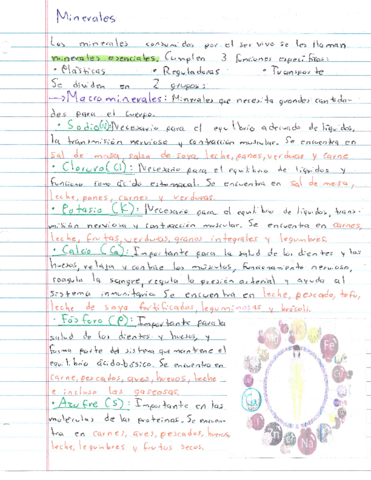 Minerales
Los minerales consumidos por el ser vivo se les llaman
minerales esenciales. Cumplen 3 funciones específicas:
• Plásticas • Reguladoras • Transporte
Se dividen en 2 grupos:
→ Macrominerales: Minerales que necesita grandes cantida-
des para el cuerpo.
• Sodio: Necesario para el equilibrio adecuado de líquidos,
la transmisión nerviosa y contracción muscular. Se encuentra en
sal de mesa, salsa de soya, leche, panes, verduras y carne
• Cloruro (Cl): Necesario para el equilibrio de líquidos y
funciona como ácido estomacal. Se encuentra en sal de mesa,
leche, panes, carnes y verduras.
• Potasio (K): Necesario para el equilibrio de líquidos, trans-
misión nerviosa y contracción muscular. Se encuentra en carnes,
leche, frutas, verduras, granos integrales y legumbres.
• Calcio (Ca): Importante para la salud de los dientes y los
huesos, relaja y contrae los músculos, funcionamiento nervioso,
coagula la sangre, regula la presión arterial y ayuda al
sistema inmunitario Se encuentra en leche, pescado, tofu,
leche de soya fortificados, leguminosas y brócoli.
• Fósforo (P): Importante para la
salud de los dientes y huesos, y
forma parte del sistema que mantiene el
equilibrio acidobásico. Se encuentra en
carne, pescados, aves, huevos, leche
e incluso las gaseosas.
• Azufre (S): Importante en las
moléculas de las proteínas. Se encuen-
tra en carnes, aves, pescados, huevos,
leche, legumbres y frutos secos.
K
Fe
Ca
Na